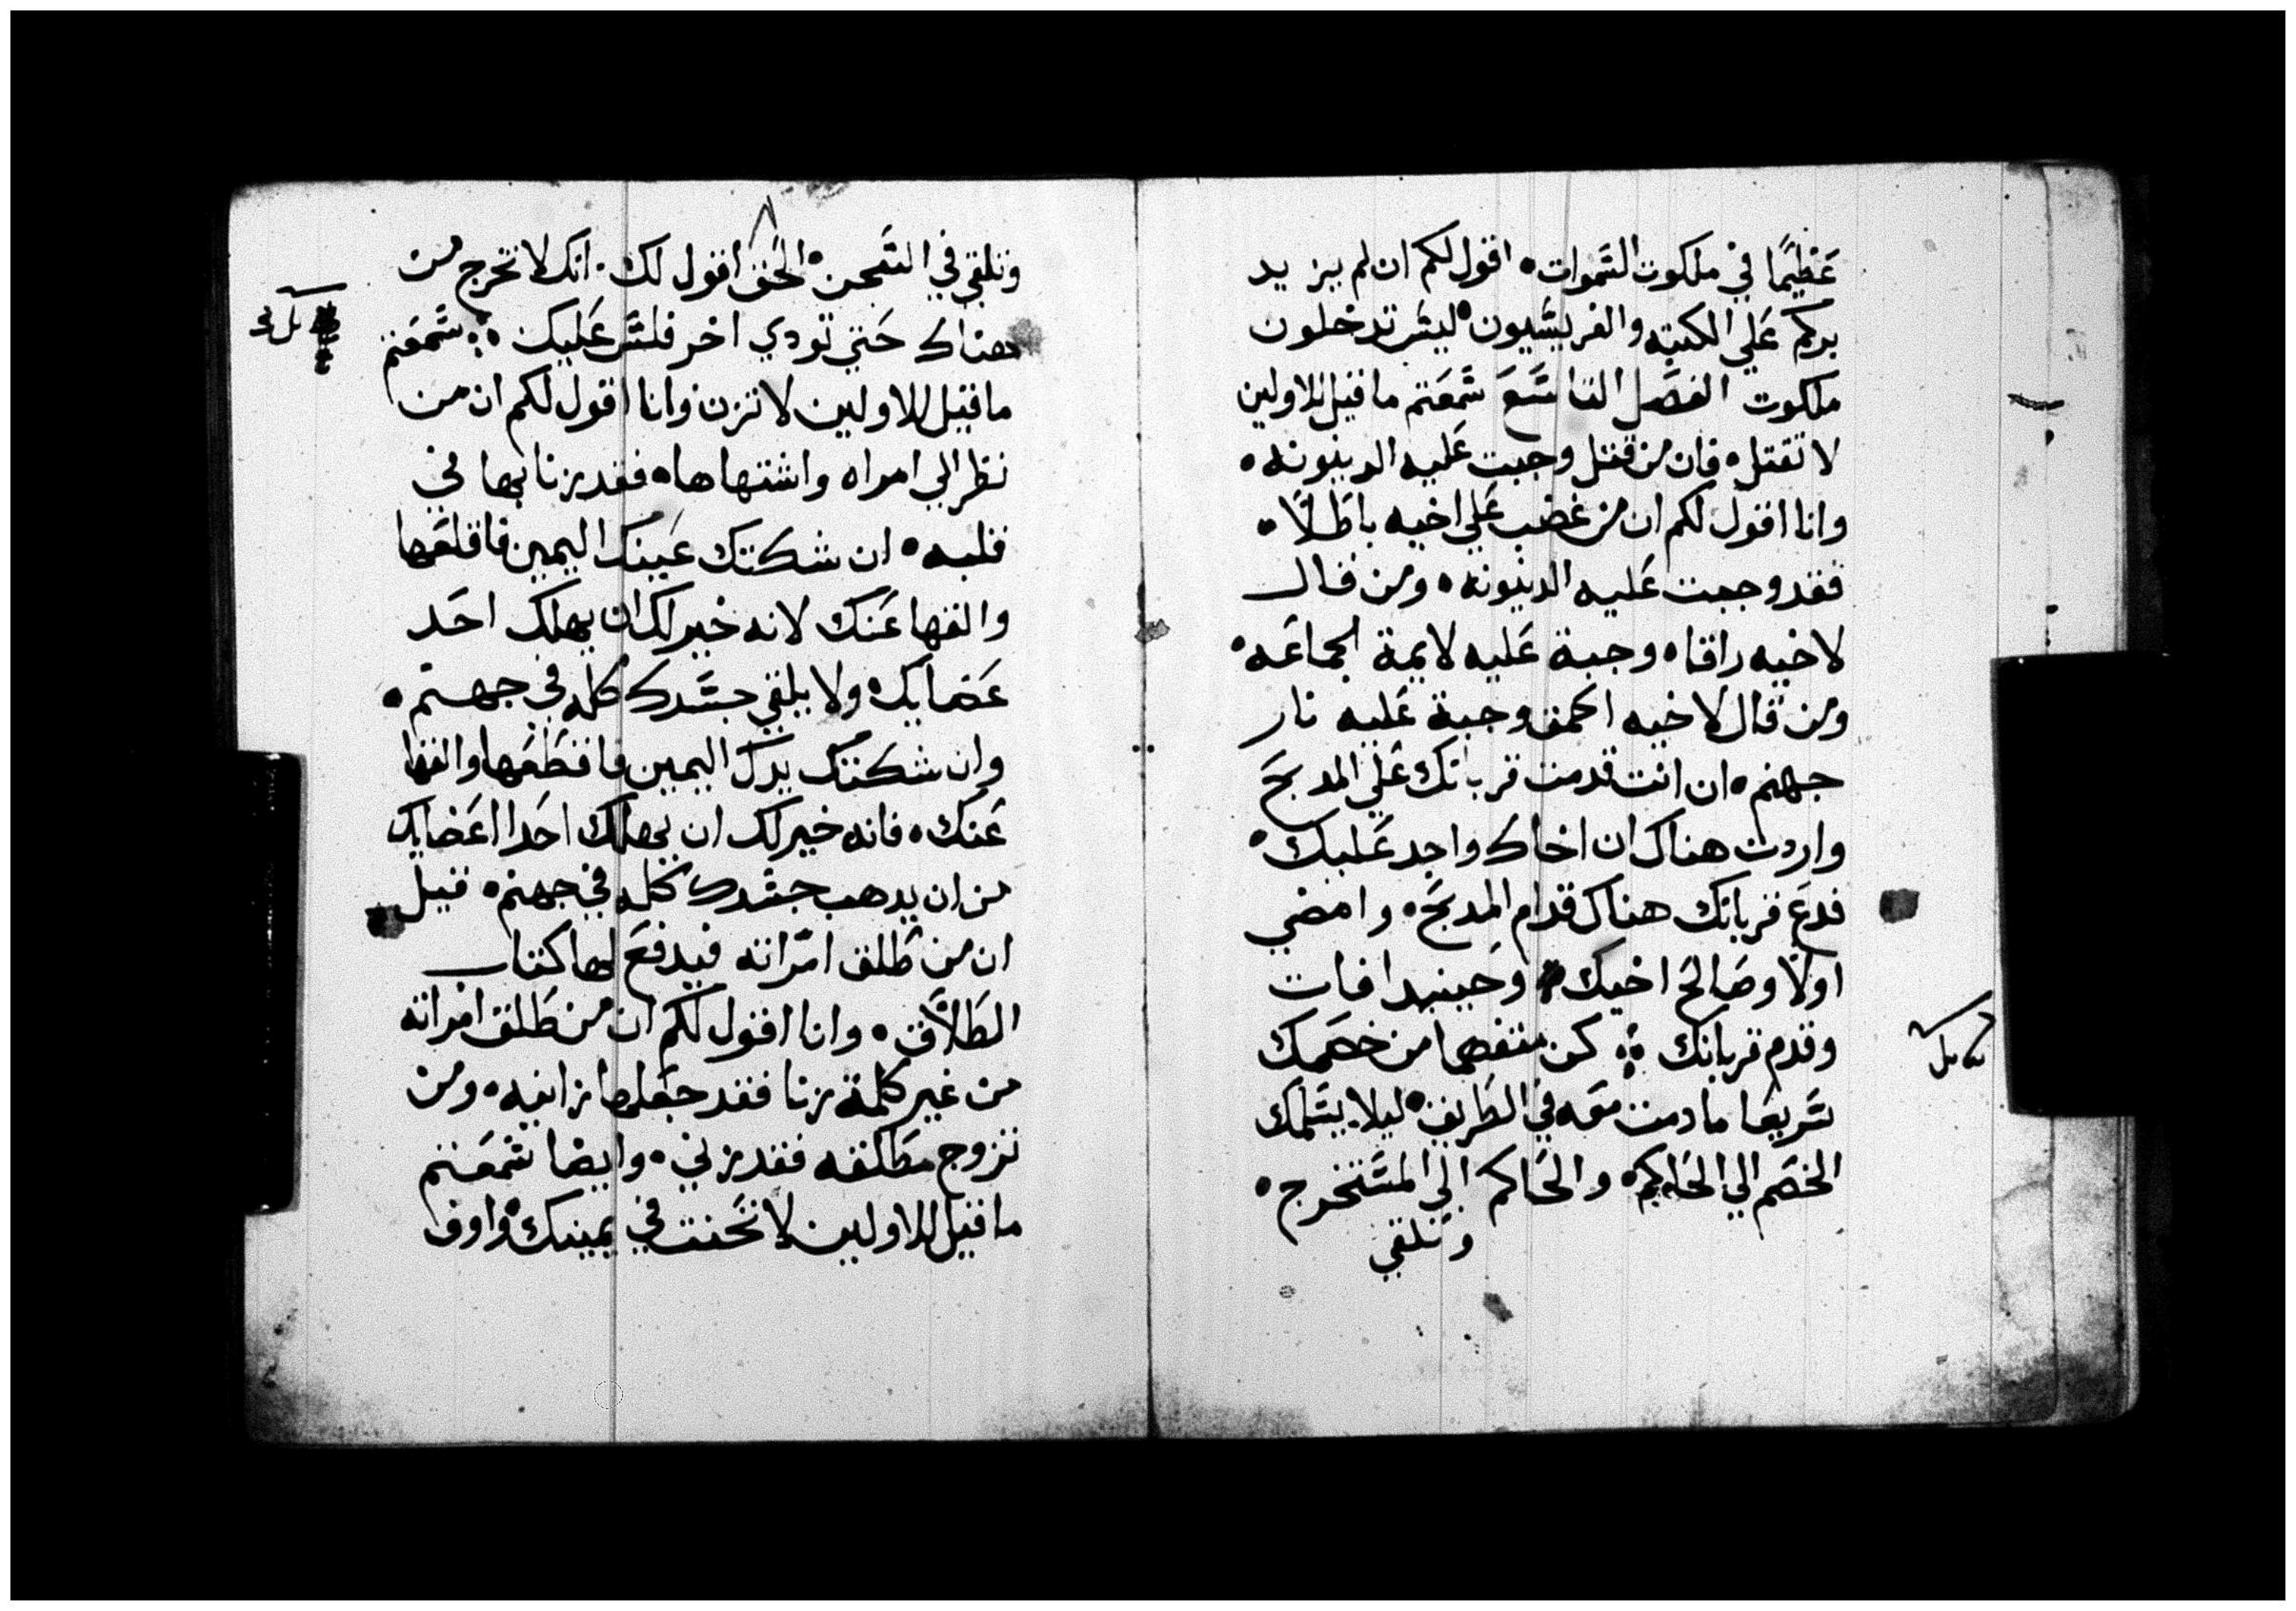 عَظيمًا في ملكوت السَموات ٠ اقول لكم ان لم يزيد
بركم عَلي الكتبه والفريسَيون ٠ ليسَ تدخلون
ملكوت الفصَل التاسَعَ سَمعَتم ما قيل للاولين
لا تقتل ٠ فان من قتل وجبت عَليه الدينونه ٠
وانا اقول لكم ان من غضب عَلي اخيه باطَلاً ٠
فقد وجبت عَليه الدينونه ٠ ومن قال
لاخيه راقا ٠ وجبة عَليه لايمة الجماعَه ٠
ومن قال لاخيه احمق وجبة عَليه نار
جهنم ٠ ان انت قدمت قربانك عَلي المدبحَ
واردت هناك ان اخاك واجد عَليك ٠
فدعَ قربانك هناك قدام المدبحَ ٠ وامضي
اولاً وصَالحَ اخيك ٠ وحَينيد افات
وقدم قربانك ۞ كن متفصا من خصَمك
سَريعَا ما دمت معَه في الطَريق ٠ ليلا يسَلمك
الخصَم الي الحَاكم ٠ والحَاكم الي المسَتخرج ٠
وتلقي
وتلقي في السَجن ٠ الحَق اقول لك ٠ انك لا تخرج من
هناك حَتي تودي اخر فلسَ عَليك ۞ سَمعَتم
ما قيل للاولين لا تزن وانا اقول لكم ان من
نظر الي امراه واشتهاها ٠ فقد زنا بها في
قلبه ٠ ان شكتك عَينك اليمين فاقلعَها
والقها عَنك لانه خير لك ان يهلك احَد
عَضايك ٠ ولا يلقي جسَدك كله في جهنم ٠
وان شكتك يدك اليمين فاقطَعَها والقها
عَنك ٠ فانه خير لك ان يهلك احَد اعَضايك
من ان يدهب جسَدك كله في جهنم ٠ قيل
ان من طَلق امراته فيدفعَ لها كتاب
الطَلاَق ٠ وانا اقول لكم ان من طَلق امراته
من غير كلمة زنا فقد جعَلها زانيه ٠ ومن
تزوج مطَلقه فقد زني ٠ وايضا سَمعَتم
ما قيل للاولين لا تحَنت في يمينك ٠ واوف